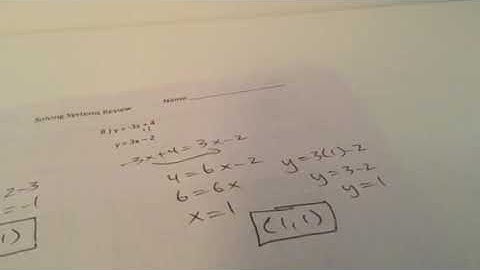 Solving Systems Review
Name
8) y = -3x + 4
y = 3x - 2
-3x+4=3x-2
4=6x-2
6=6x
x=1
y=3(1)-2
y=3-2
y=1
(1,1)
2-3
=-1
1)